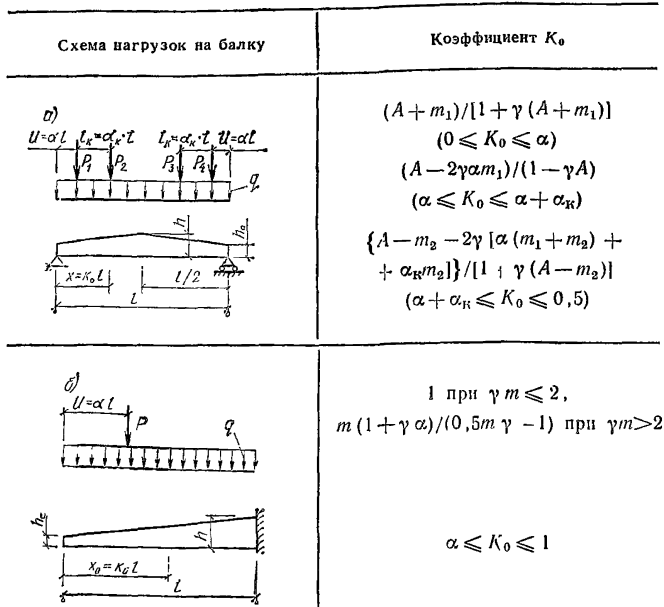 Схема нагрузок на балку
Коэффициент K₀
а)
U=αl lк=αк·l lк=αк·l U=αl
P₁ P₂ P₃ P₄
q
h
h₀
x=K₀l l/2
l
(A+m₁)/[1+γ(A+m₁)]
(0⩽K₀⩽α)
(A−2γαm₁)/(1−γA)
(α⩽K₀⩽α+αк)
{A−m₂−2γ[α(m₁+m₂)+
+αкm₂]}/[1+γ(A−m₂)]
(α+αк⩽K₀⩽0,5)
б)
U=αl
P
q
h
x₀=K₀l
l
1 при γm⩽2,
m(1+γα)/(0,5mγ−1) при γm>2
α⩽K₀⩽1